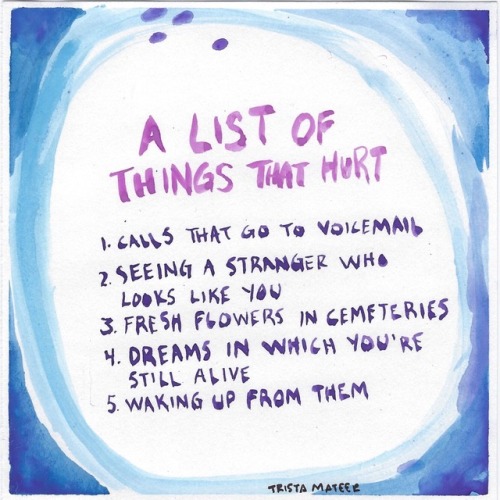 A LIST OF
THINGS THAT HURT
1. CALLS THAT GO TO VOICEMAIL
2. SEEING A STRANGER WHO
LOOKS LIKE YOU
3. FRESH FLOWERS IN CEMETERIES
4. DREAMS IN WHICH YOU'RE
STILL ALIVE
5. WAKING UP FROM THEM
TRISTA MATEER